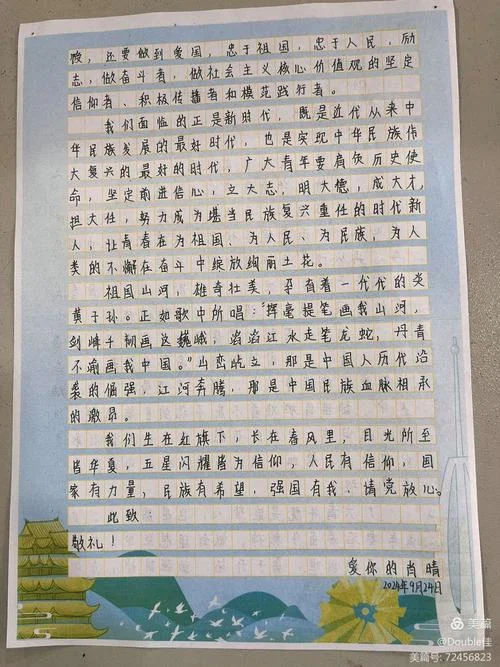 酸，还要做到爱国，忠于祖国，忠于人民，励
志，做奋斗者，做社会主义核心价值观的坚定
信仰者、积极传播者和模范践行者。
我们面临的正是新时代，既是近代从来中
华民族发展的最好时代，也是实现中华民族伟
大复兴的最好的时代，广大青年要肩负历史使
命，坚定前进信心，立大志，明大德，成大才，
担大任，努力成为堪当民族复兴重任的时代新
人，让青春在为祖国、为人民、为民族，为人
类的不懈在奋斗中绽放绚丽土花。
祖国山河，雄奇壮美，孕育着一代代的炎
黄子孙。正如歌中所唱："挥毫提笔画我山河，
剑峰千柳画这巍峨，滔滔江水走笔龙蛇，丹青
不渝画我中国。"山峦屹立，那是中国人历代沿
袭的倔强，江河奔腾，那是中国民族血脉相承
的激昂。
我们生在红旗下，长在春风里，目光所至
皆华夏，五星闪耀皆为信仰，人民有信仰，国
家有力量，民族有希望，强国有我、请党放心。
此致：
敬礼！
爱你的肖晴
2024年9月24日
美篇
@Double佳
美篇号: 72456823